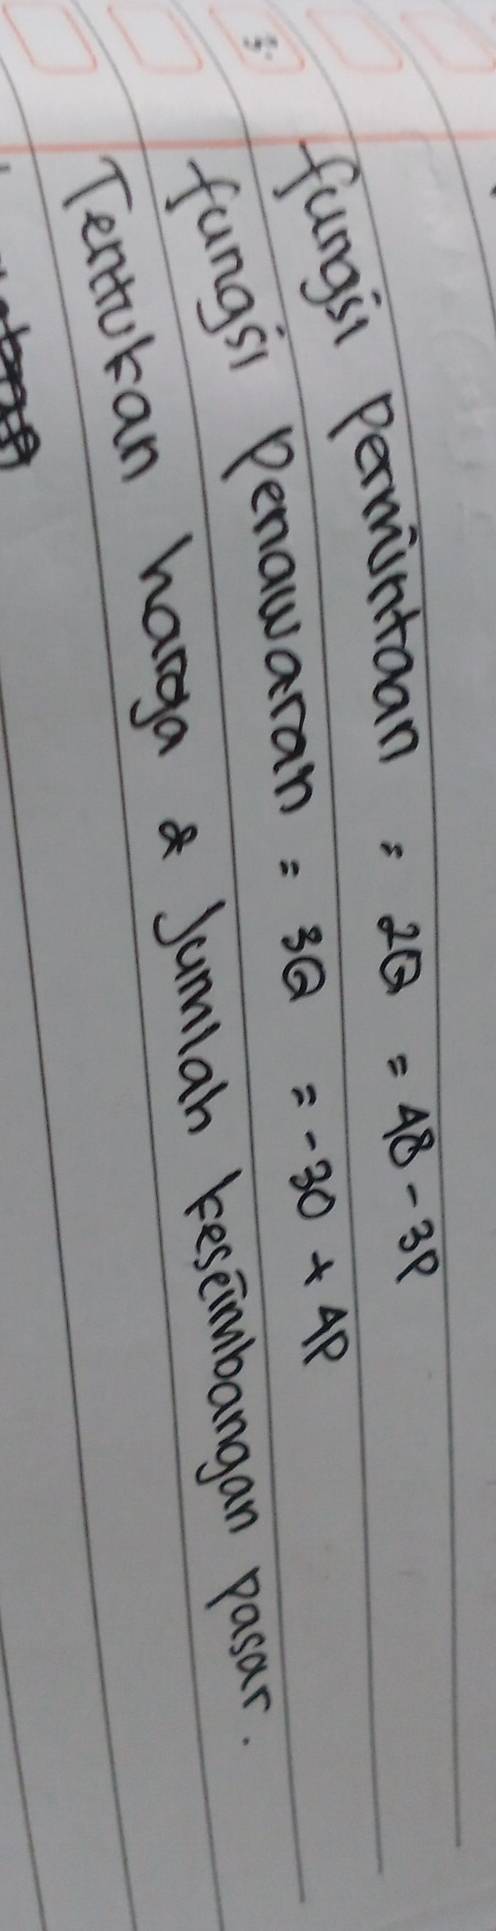 3.
fungsi permintaan = 2Q = 48 - 3P
fungsi penawaran = 3Q = -30 + 4P
Tentukan harga & Jumlah keseimbangan pasar.